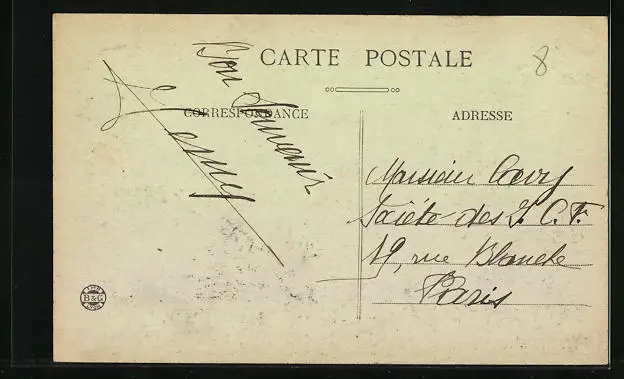 CARTE POSTALE
8
CORRESPONDANCE
ADRESSE
Bon Souvenir
Monsieur
Société des I. C. F.
19, rue Blanche
Paris
IMP
B&G
LYON